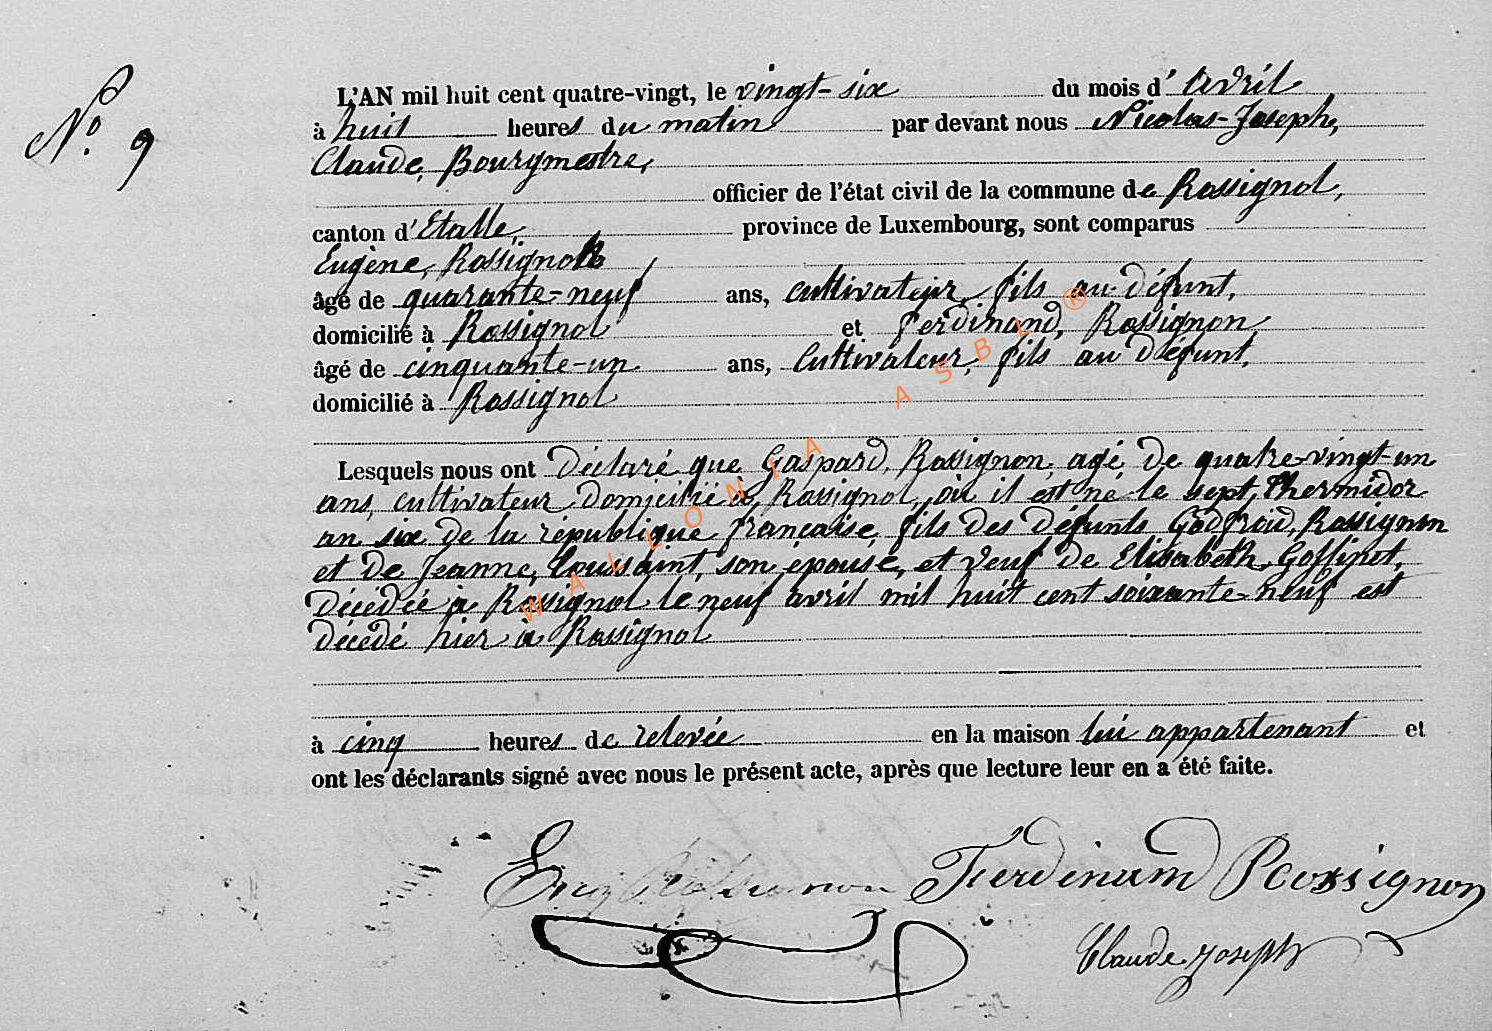 N.º 9
L'AN mil huit cent quatre-vingt, le vingt-six du mois d' Avril
à huit heures du matin par devant nous Nicolas-Joseph,
Claude, Bourgmestre,
officier de l'état civil de la commune de Rossignol,
canton d'Etalle, province de Luxembourg, sont comparus
Eugène, Rossignon
âgé de quarante-neuf ans, cultivateur, fils au défunt,
domicilié à Rossignol et Ferdinand, Rossignon,
âgé de cinquante-un ans, Cultivateur, fils au défunt,
domicilié à Rossignol
Lesquels nous ont déclaré que Gaspard, Rossignon, agé de quatre-vingt-un
ans, cultivateur domicilié à Rossignol, où il est né le sept, thermidor
an six de la république française, fils des défunts Godfroid, Rossignon
et de Jeanne, Toussaint, son épouse, et veuf de Elisabeth, Goffinet,
décédée à Rossignol le neuf avril mil huit cent soixante-neuf est
décedé hier à Rossignol
à cinq heures de relevée en la maison lui appartenant et
ont les déclarants signé avec nous le présent acte, après que lecture leur en a été faite.
Ferdinand Rossignon
Claude Joseph
WALLONIA ASBL ®